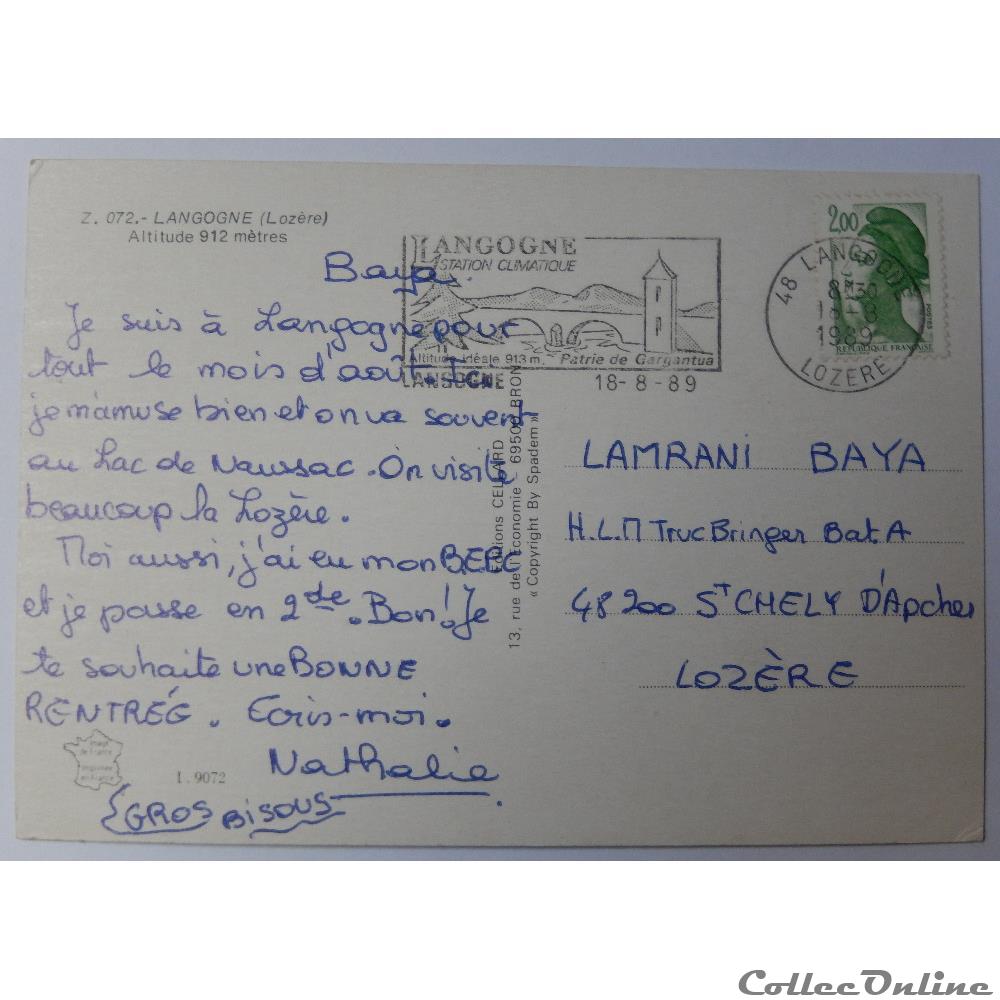 Z. 072.- LANGOGNE (Lozère)
Altitude 912 mètres
Baya.
Je suis à Langogne pour
tout le mois d'août. Ici
je m'amuse bien et on va souvent
au Lac de Naussac. On visite
beaucoup la Lozère.
Moi aussi, j'ai eu mon BEPC
et je passe en 2de. Bon! Je
te souhaite une BONNE
RENTRÉE. Ecris-moi.
Nathalie
GROS BISOUS
I. 9072
Image
de France
imprimée
en France
Editions CELLARD
13, rue de l'Economie - 69500 BRON
« Copyright By Spadem »
LANGOGNE
STATION CLIMATIQUE
Altitude idéale 913 m. Patrie de Gargantua
LANGOGNE 18-8-89
2,00
POSTES
REPUBLIQUE FRANÇAISE
48 LANGOGNE
18-8
1989
LOZERE
LAMRANI BAYA
H.L.M Truc Bringer Bat. A
48200 ST CHELY D'Apcher
LOZÈRE
CollecOnline